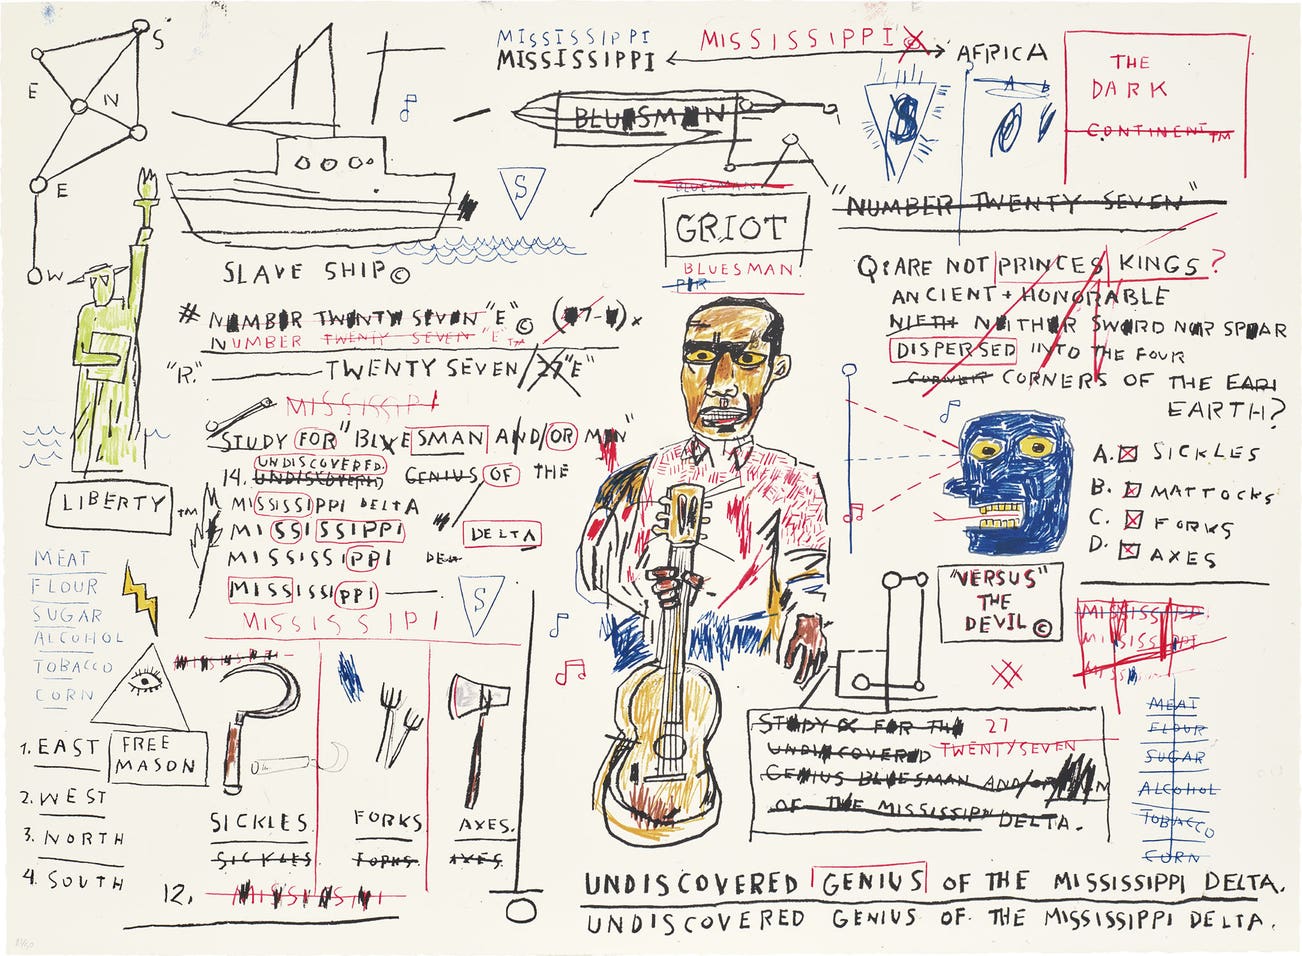 S
E
N
E
W
MISSISSIPPI
MISSISSIPPI
MISSISSIPPI
AFRICA
THE
DARK
CONTINENT TM
BLUESMAN
S
A B
S
BLUESMAN
GRIOT
BLUESMAN.
"NUMBER TWENTY SEVEN"
SLAVE SHIP ©
# NUMBER TWENTY SEVEN "E" ©
NUMBER TWENTY SEVEN "E" TM
"R." TWENTY SEVEN/27 "E"
MISSISSIPPI
STUDY FOR "BLUESMAN AND/OR MAN"
UNDISCOVERED
14. UNDISCOVERED GENIUS OF THE
MISSISSIPPI DELTA
MISSISSIPPI
DELTA
MISSISSIPPI
MISSISSIPPI
MISSISSIPI
S
Q: ARE NOT PRINCES KINGS?
ANCIENT + HONORABLE
NIETH NEITHER SWORD NOR SPEAR
DISPERSED INTO THE FOUR
CORNERS OF THE EARI
EARTH?
A. SICKLES
B. MATTOCKS
C. FORKS
D. AXES
"VERSUS"
THE
DEVIL ©
MISSISSIPPI
MISSISSIPPI
LIBERTY TM
MEAT
FLOUR
SUGAR
ALCOHOL
TOBACCO
CORN
FREE
MASON
1. EAST
2. WEST
3. NORTH
4. SOUTH
SICKLES.
SICKLES.
FORKS
FORKS.
AXES.
AXES.
12.
STUDY FOR THE 27
UNDISCOVERED TWENTYSEVEN
GENIUS BLUESMAN AND/OR MAN
OF THE MISSISSIPPI DELTA.
MEAT
FLOUR
SUGAR
ALCOHOL
TOBACCO
CORN
UNDISCOVERED GENIUS OF THE MISSISSIPPI DELTA.
UNDISCOVERED GENIUS OF THE MISSISSIPPI DELTA.